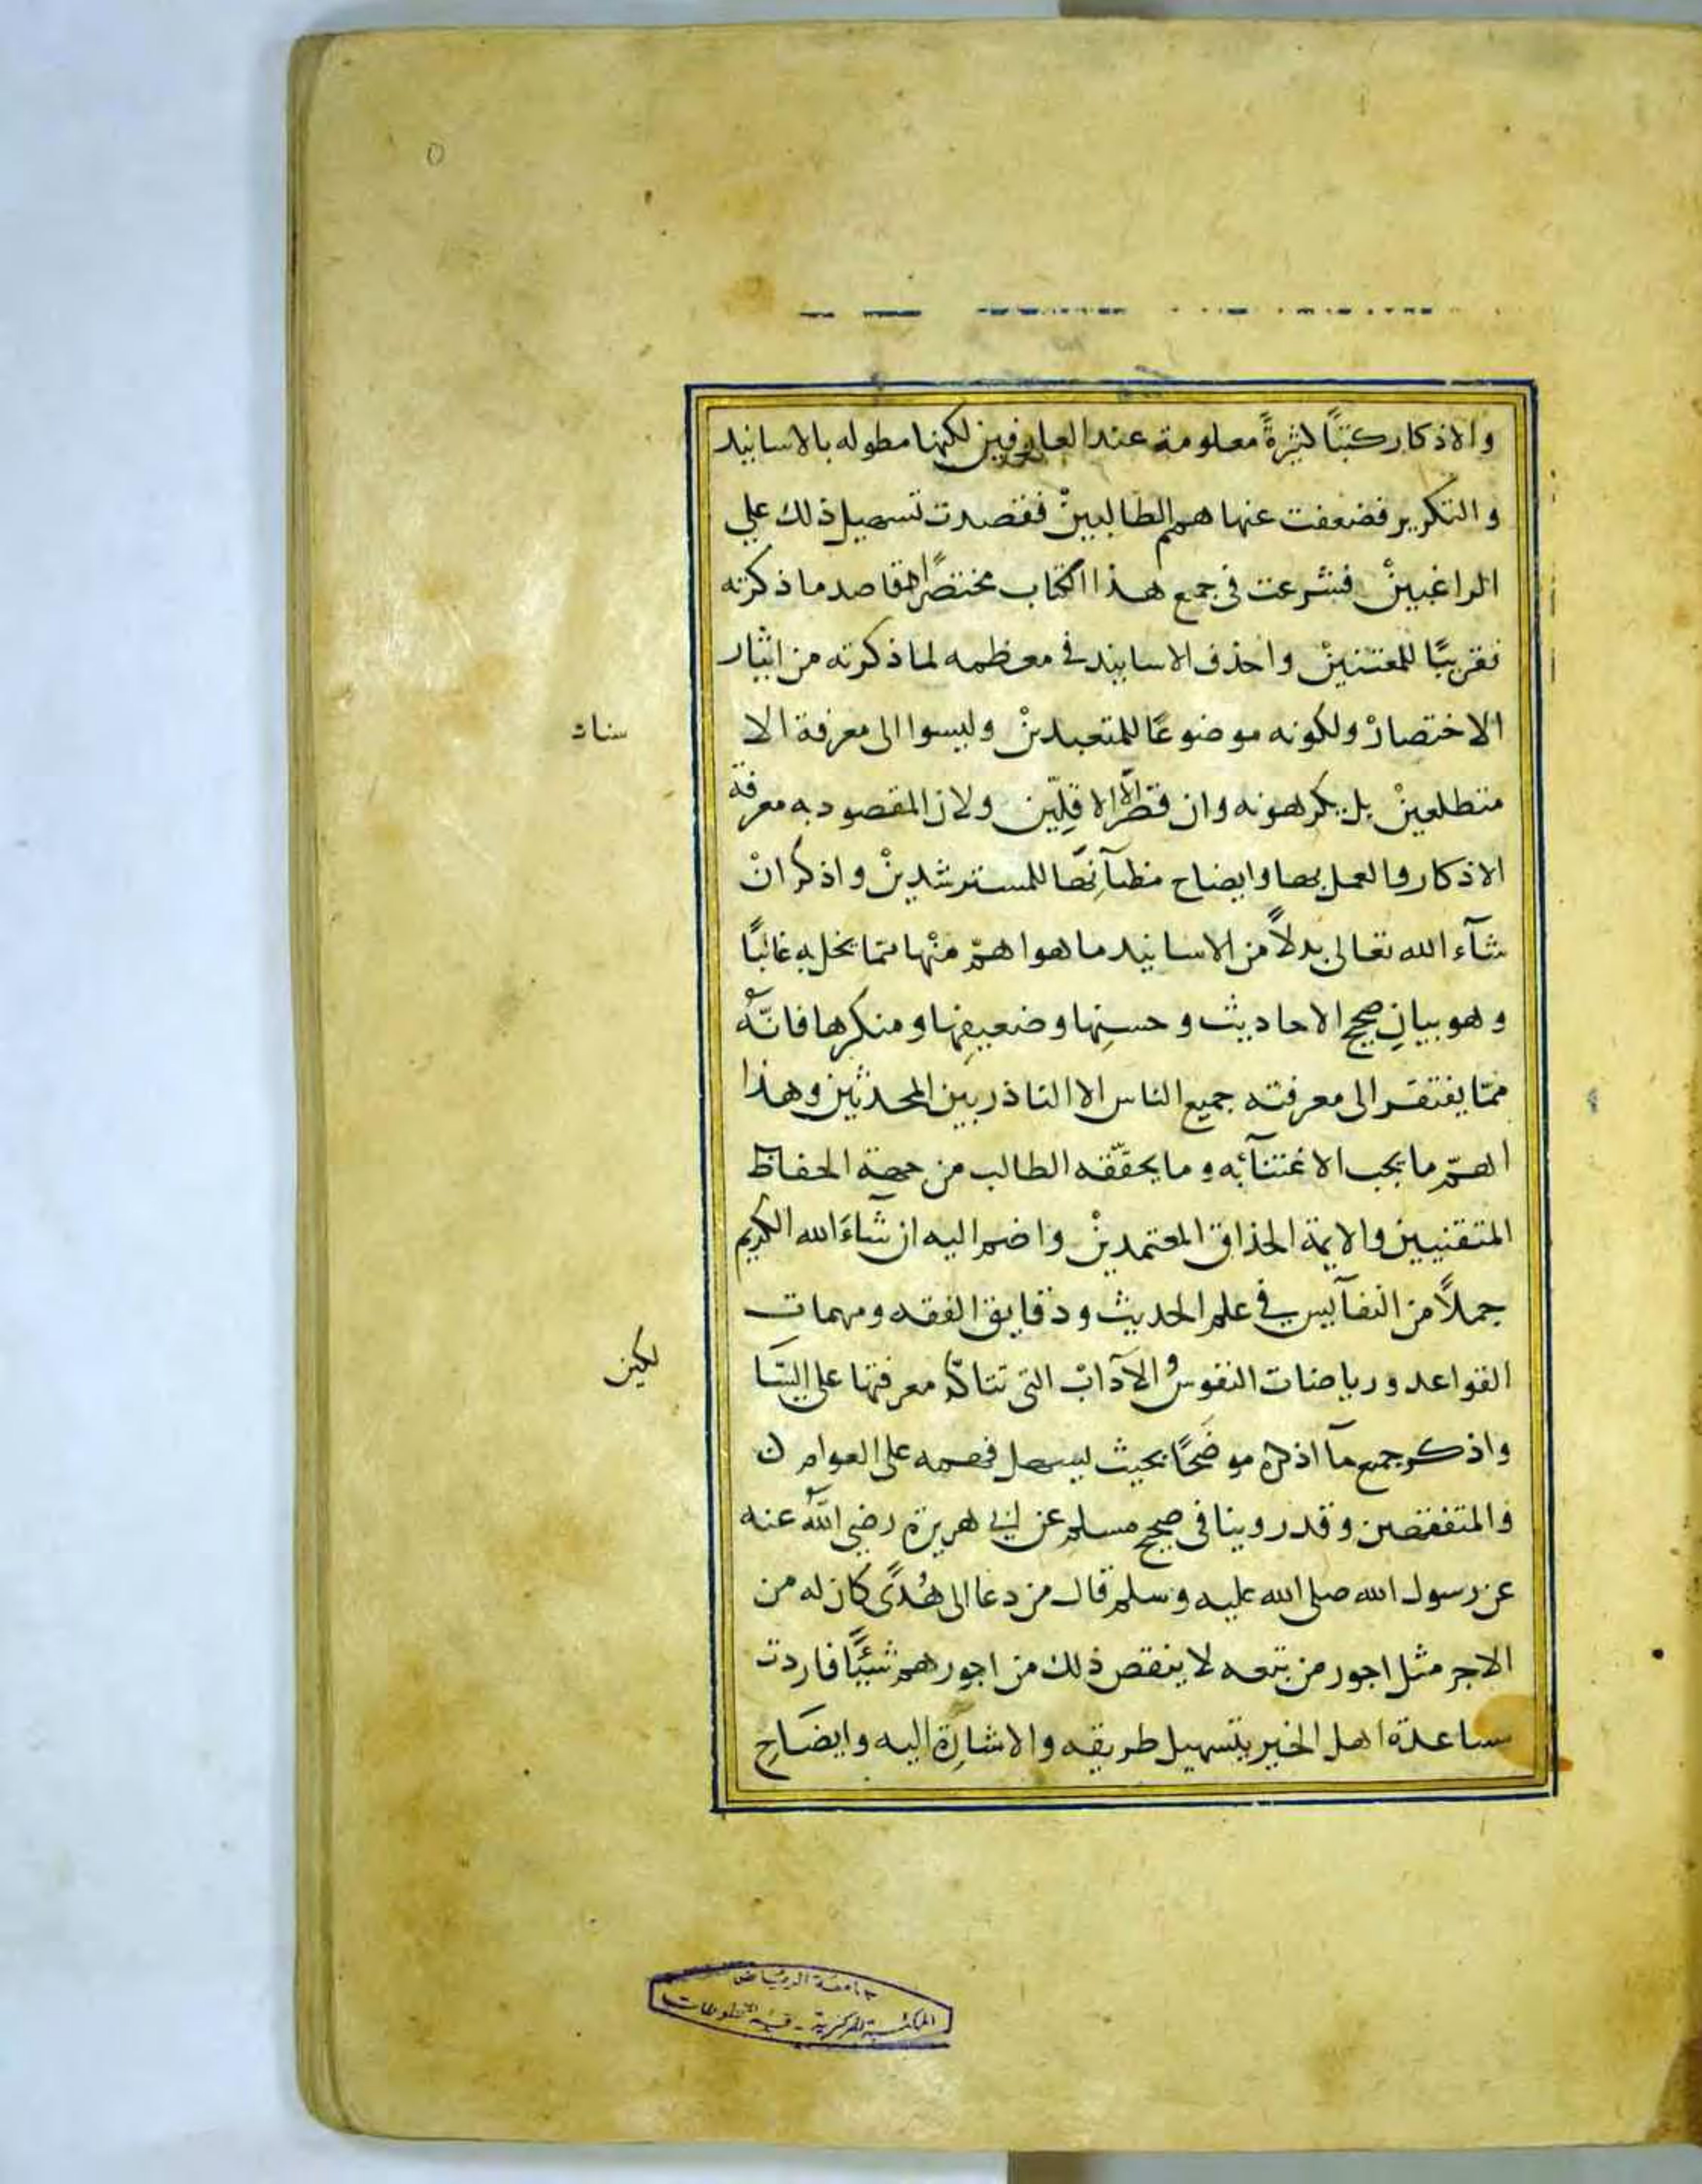 ٥
والاذكار كتبًا كثيرةً معلومة عند العارفين لكنها مطوله بالاسانيد
والتكرير فضعفت عنها همم الطالبينْ فقصدت تسهيل ذلك علي
الراغبينْ فشرعت في جمع هذا الكتاب مختصرًا مقاصد ما ذكرته
تقريبًا للمعتنينْ واحذف الاسانيد في معظمه لما ذكرته من ايثار
الاختصارْ ولكونه موضوعًا للمتعبدينْ وليسوا الى معرفة الا
سناد
متطلعينْ بل يكرهونه وان الاقلّين ولان المقصود به معرفة
الاذكار والعمل بها وايضاح مظآنّها للمسترشدينْ واذكر انْ
شآء الله تعالى بدلاً من الاسانيد ما هو اهمّ منْها ممّا يخل به غالبًا
وهو بيانِ صحيح الاحاديث وحسنِها وضعيفِها ومنكرها فانّهُ
ممّا يفتقر الى معرفته جميع الناس الا الناذر بين المحدثين وهذا
اهمّ ما يجب الاعتنآء به وما يحقّقه الطالب من جهة الحفاظ
المتقنيين والايمة الحذاق المعتمدينْ واضم اليه ان شاءَ الله الكريم
جملاً من النفآيس في علم الحديث ودقايق الفقه ومهمات
القواعد ورياضات النفوس والآداب التي تتاكّد معرفتها على السّا
لكين
واذكر جميع مآ اذكره موضحًا بحيث يسهل فهمه على العوام
والمتفقهين وقد روينا في صحيح مسلم عن ابي هريرة رضي اللّهُ عنه
عن رسول الله صلى الله عليه وسلم قال من دعا الى هُدًى كان له من
الاجر مثل اجور من تبعه لا ينقص ذلك من اجورهم شيئًا فاردت
مساعدة اهل الخير بتسهيل طريقه والاشارة اليه وايضَاحِ
جامعة الرياض
المكتبة المركزية - قسم المخطوطات